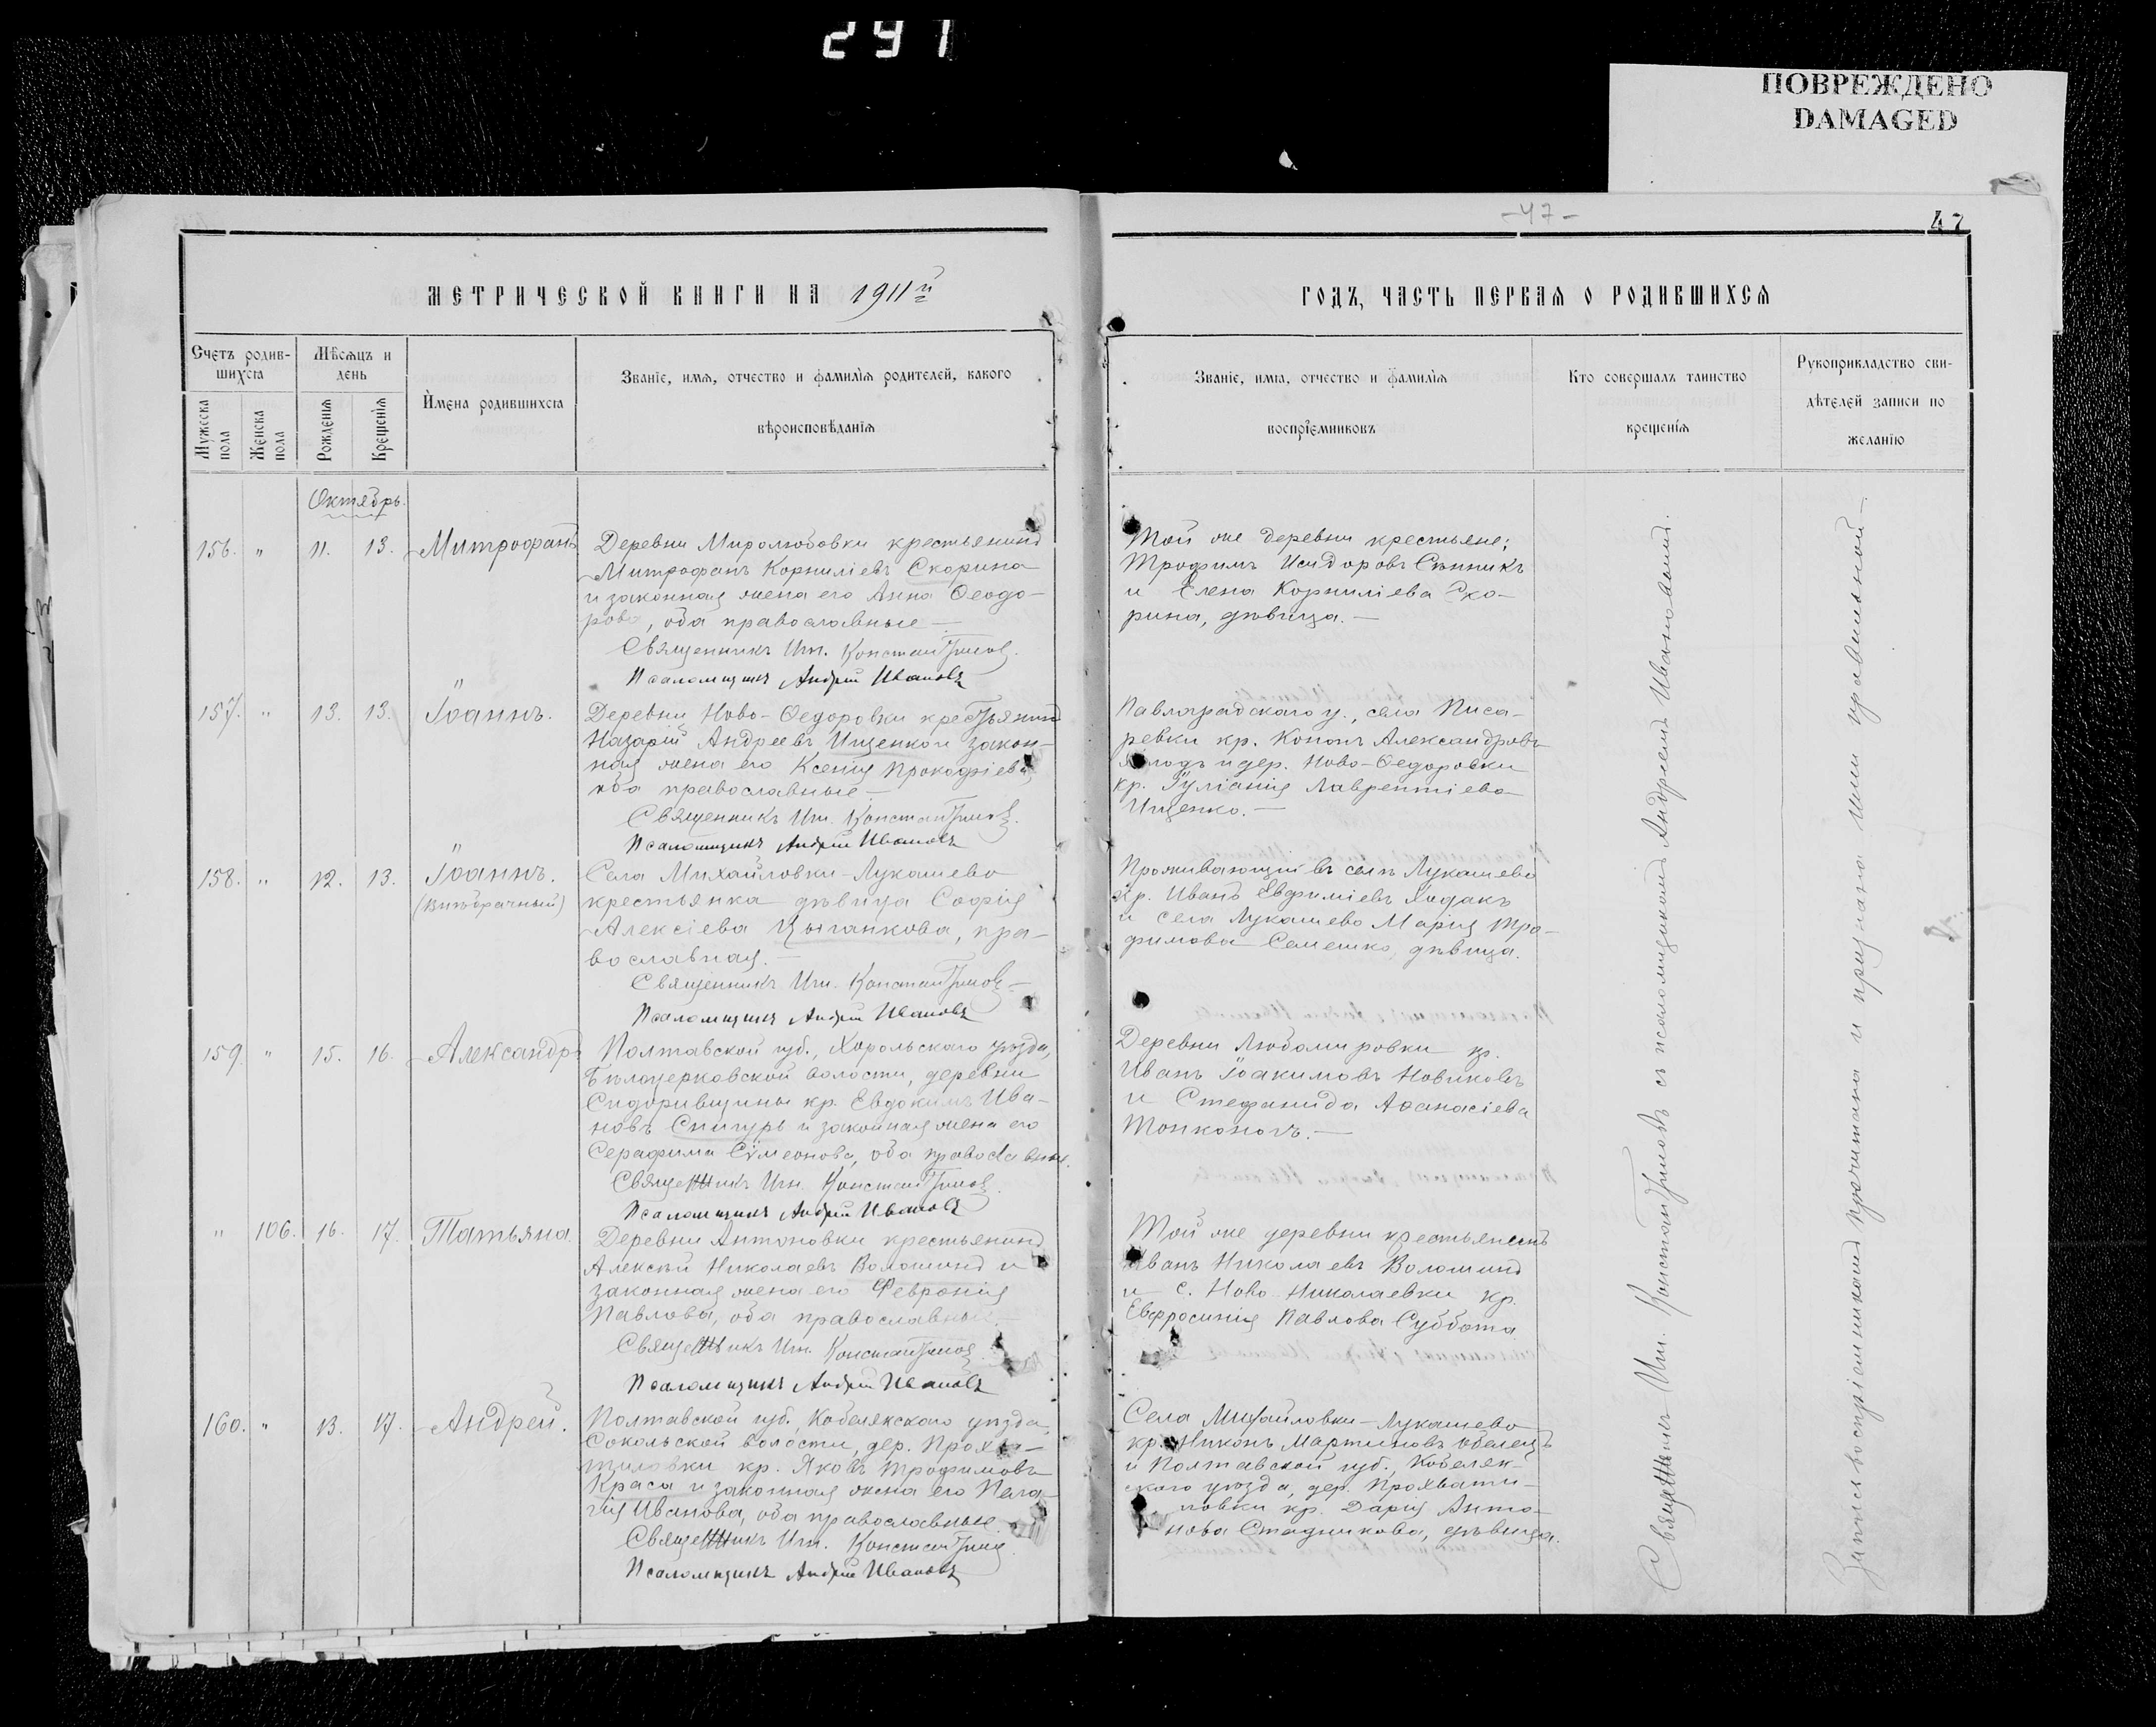 291
ПОВРЕЖДЕНО
DAMAGED
-47-
47
МЕТРИЧЕСКОЙ КНИГИ НА 1911й
ГОДЪ, ЧАСТЬ ПЕРВАЯ О РОДИВШИХСЯ
Счетъ родив-
шихся
Мужеска пола
Женска пола
Мѣсяцъ и
день
Рожденія
Крещенія
Имена родившихся
Званіе, имя, отчество и фамилія родителей, какого
вѣроисповѣданія
Званіе, имя, отчество и фамилія
воспріемниковъ
Кто совершалъ таинство
крещенія
Рукоприкладство сви-
дѣтелей записи по
желанію
Октябрь.
156. " 11. 13. Митрофанъ
Деревни Миролюбовки крестьянинъ
Митрофанъ Корниліевъ Скорина
и законная жена его Анна Ѳеодо-
рова, оба православные —
Священникъ Ип. Константиновъ.
Псаломщикъ Андрей Ивановъ
Той же деревни крестьяне:
Трофимъ Исидоровъ Сѣнникъ
и Елена Корниліева Ско-
рина, дѣвица. —
157. " 13. 13. Іоаннъ.
Деревни Ново-Ѳедоровки крестьянинъ
Назарій Андреевъ Ищенко и закон-
ная жена его Ксенія Прокофіева,
оба православные —
Священникъ Ип. Константиновъ.
Псаломщикъ Андрей Ивановъ
Павлоградскаго у., села Писа-
ревки кр. Кононъ Александровъ
и дер. Ново-Ѳедоровки
кр. Іуліанія Лаврентіева
Ищенко. —
158. " 12. 13. Іоаннъ.
(внѣбрачный)
Села Михайловки-Лукашево
крестьянка дѣвица Софія
Алексіева Цыганкова, пра-
вославная. —
Священникъ Ип. Константиновъ —
Псаломщикъ Андрей Ивановъ
Проживающій въ селѣ Лукашево
кр. Иванъ Евфиміевъ Ходакъ
и села Лукашево Марія Тро-
фимова Семешко, дѣвица.
159. " 15. 16. Александръ
Полтавской губ., Хорольскаго уѣзда,
Бѣлоцерковской волости, деревни
Сидоривщины кр. Евдокимъ Ива-
новъ Снигурь и законная жена его
Серафима Сѵмеонова, оба православные.
Священникъ Ип. Константиновъ.
Псаломщикъ Андрей Ивановъ
Деревни Любомировки кр.
Иванъ Іоакимовъ Новиковъ
и Стефанида Аѳанасіева
Тонконогъ. —
" 106. 16. 17. Татьяна.
Деревни Антоновки крестьянинъ
Алексѣй Николаевъ Волошинъ и
законная жена его Февронія
Павлова, оба православные. —
Священникъ Ип. Константиновъ.
Псаломщикъ Андрей Ивановъ
Той же деревни крестьянинъ
Иванъ Николаевъ Волошинъ
и с. Ново-Николаевки кр.
Евфросинія Павлова Суббота
160. " 13. 17. Андрей.
Полтавской губ., Кобелякскаго уѣзда,
Сокольской волости, дер. Прохва-
тиловки кр. Яковъ Трофимовъ
Краса и законная жена его Пела-
гія Иванова, оба православные.
Священникъ Ип. Константиновъ.
Псаломщикъ Андрей Ивановъ
Села Михайловки-Лукашево
кр. Никонъ Мартиновъ
и Полтавской губ., Кобеляк-
скаго уѣзда, дер. Прохвати-
ловки кр. Дарія Анто-
нова Стадникова, дѣвица.
Священникъ Ип. Константиновъ съ псаломщикомъ Андреемъ Ивановымъ.
Запись воспріемниками прочитана и признана ими правильной —